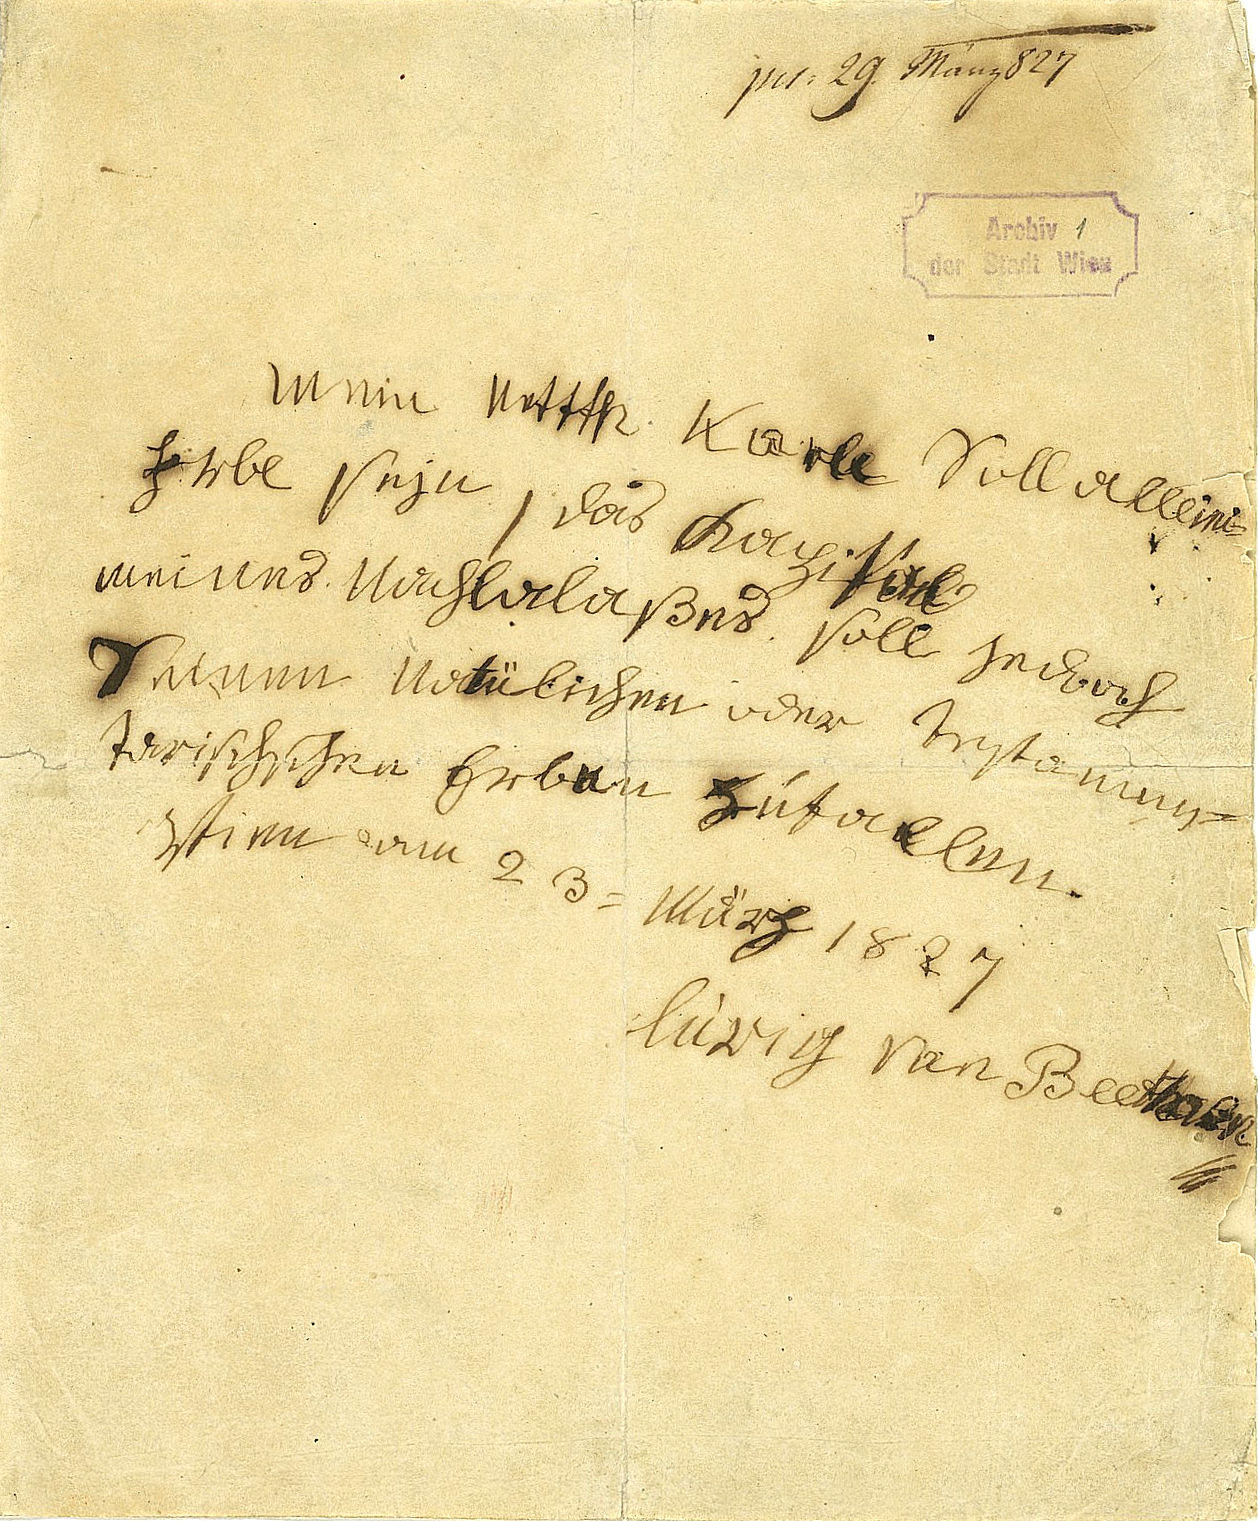 prs: 29. März 827
Archiv 1
der Stadt Wien
Mein Neffe Karle Soll allein-
Erbe seyn, das Kapital
meines Nachlalaßes soll jedoch
Seinen natülichen oder testamen-
tarischschen Erben zufallen.
Wien am 23= März 1827
luwig van Beethoven